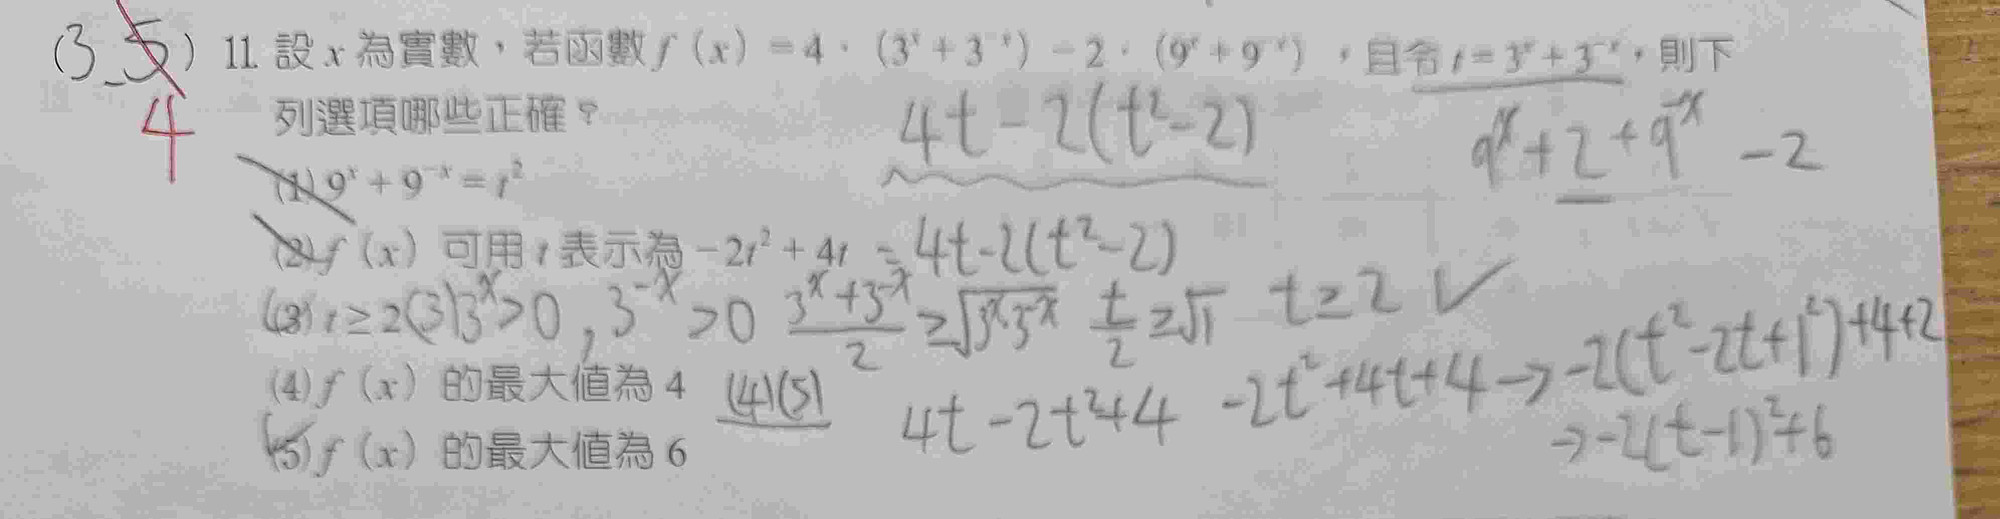 (3.5) 11. 設 x 為實數，若函數 f（x）= 4·（3ˣ + 3⁻ˣ）- 2·（9ˣ + 9⁻ˣ），且令 t = 3ˣ + 3⁻ˣ，則下
4 列選項哪些正確？ 4t - 2(t² - 2) 9ˣ + 2 + 9⁻ˣ - 2
(1) 9ˣ + 9⁻ˣ = t²
(2) f（x）可用 t 表示為 -2t² + 4t = 4t - 2(t² - 2)
(3) t ≥ 2 (3) 3ˣ > 0 , 3⁻ˣ > 0 (3ˣ + 3⁻ˣ)/2 ≥ √(3ˣ·3⁻ˣ) t/2 ≥ √1 t ≥ 2 ✓
(4) f（x）的最大值為 4 (4)(5) 4t - 2t² + 4 -2t² + 4t + 4 → -2(t² - 2t + 1²) + 4 + 2
(5) f（x）的最大值為 6 → -2(t - 1)² + 6